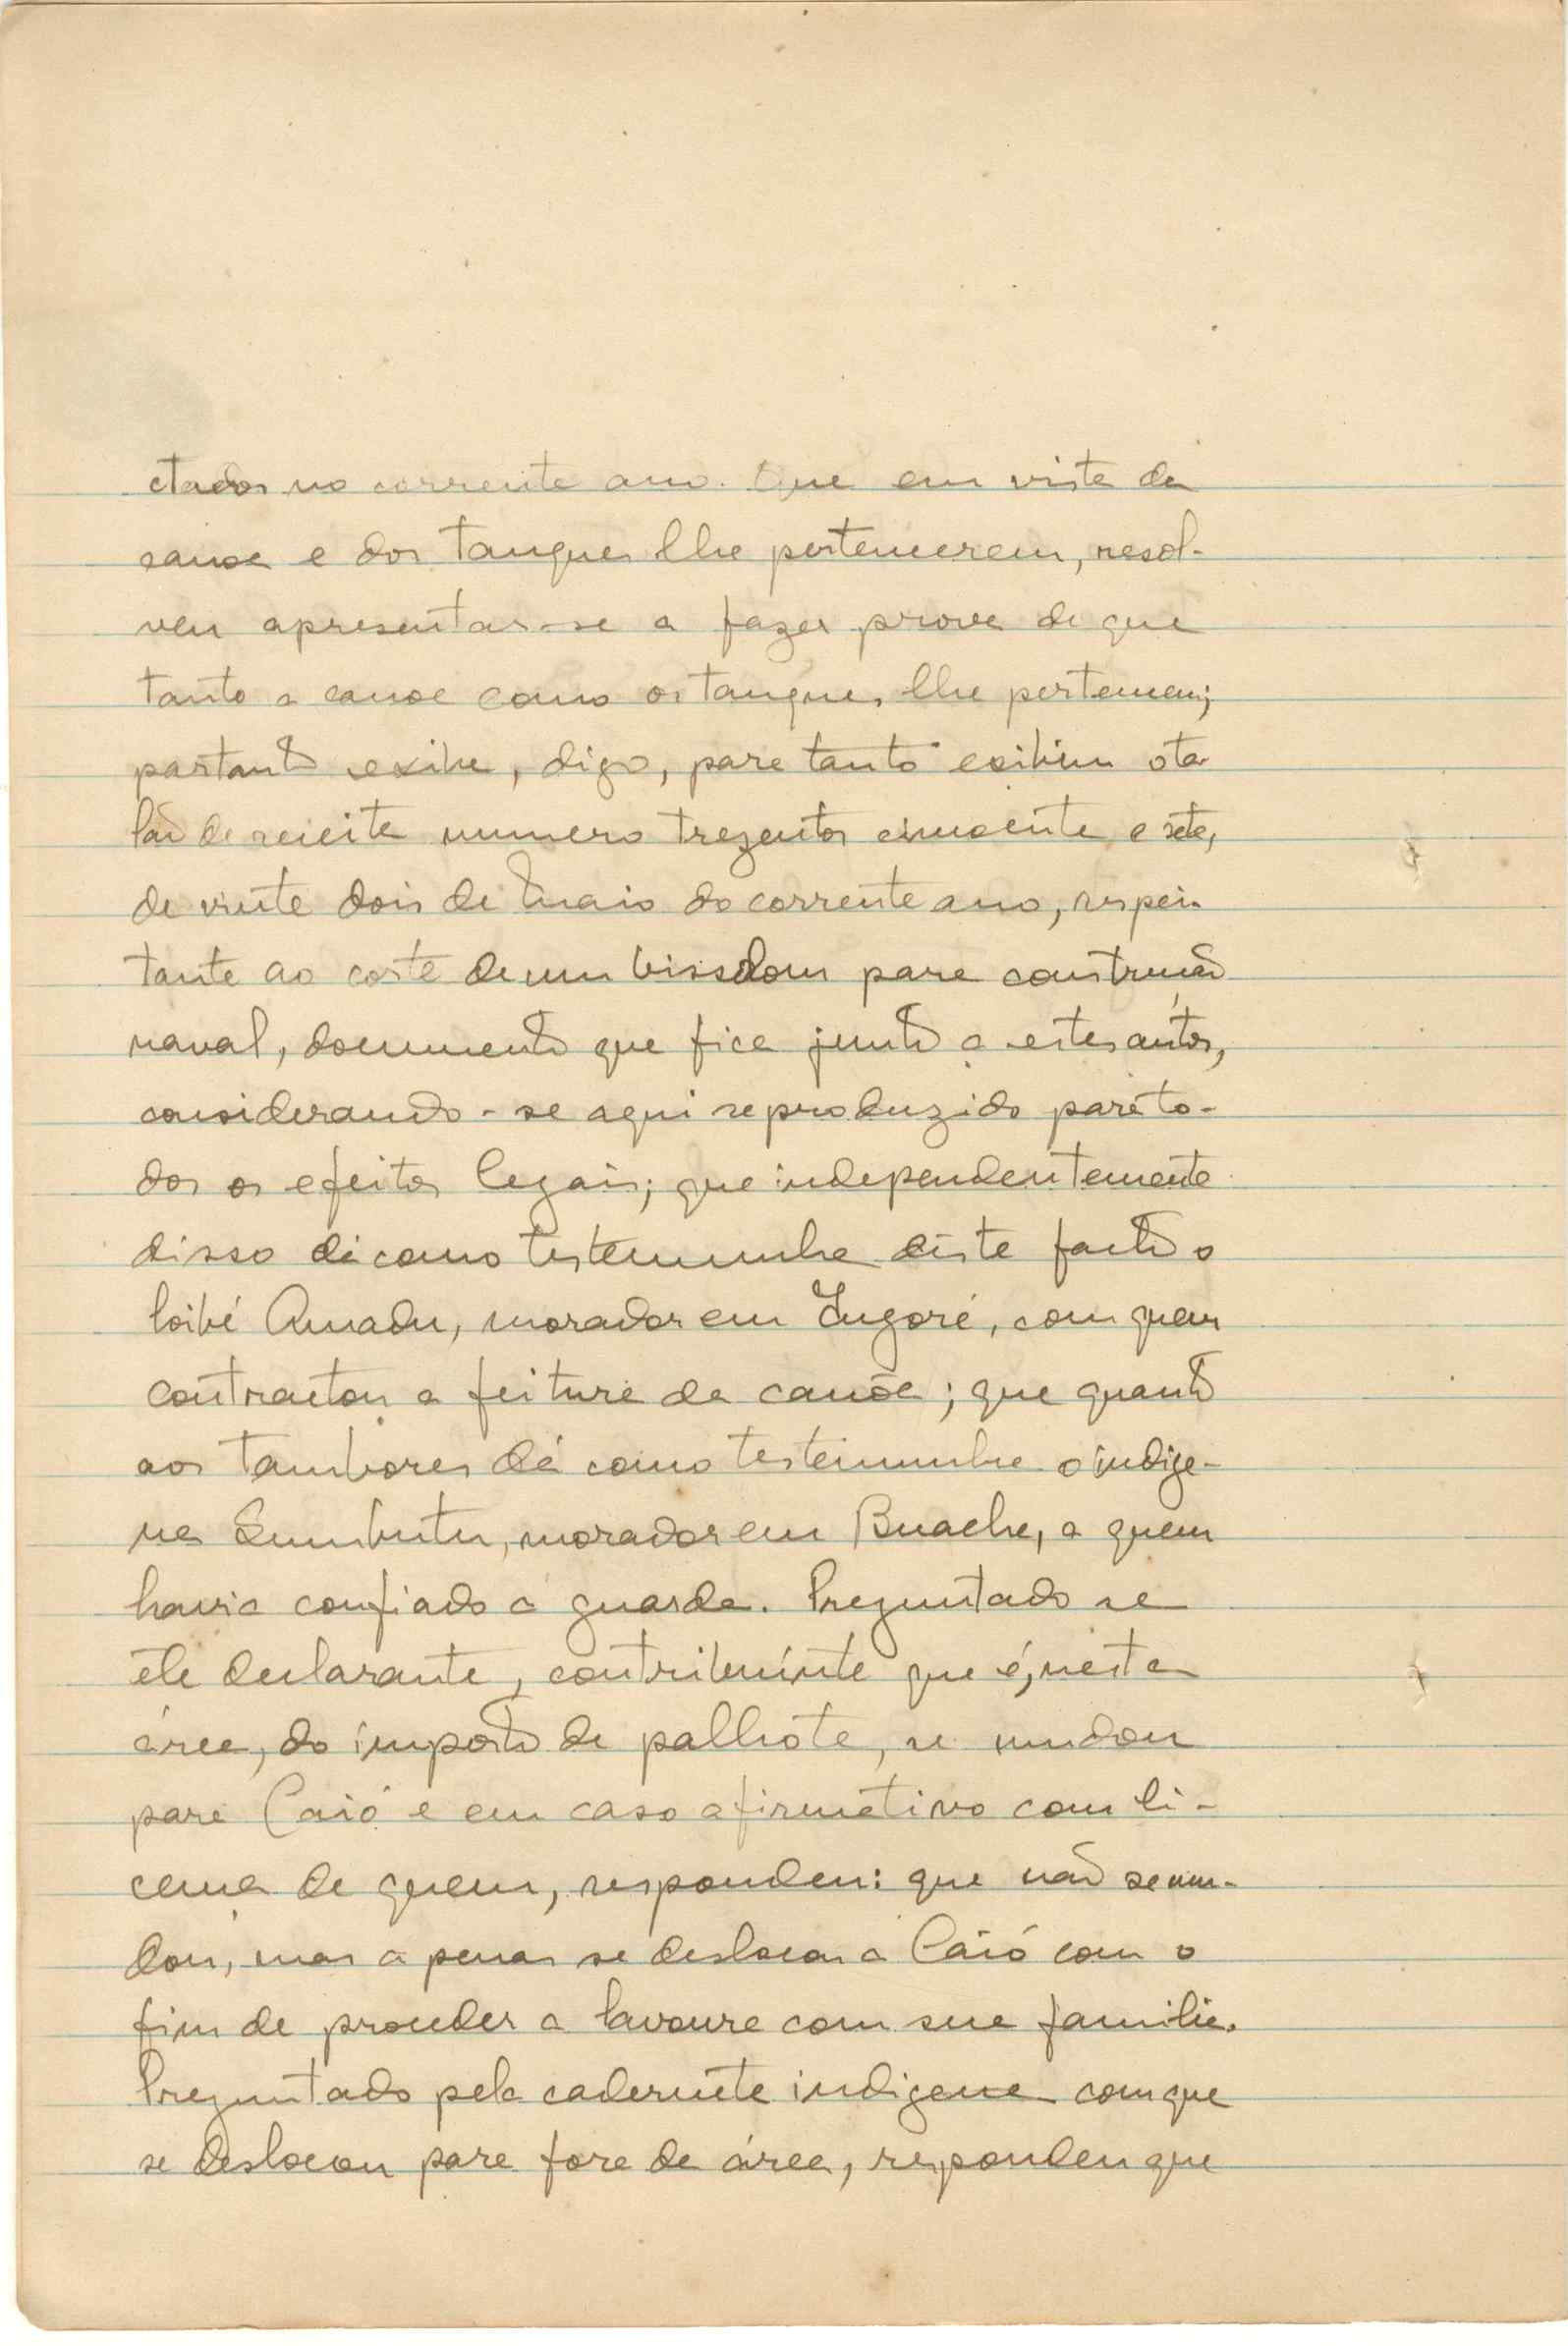 ctados no corrente ano. Que em vista da
canoa e dos tanques lhe pertencerem, resol-
veu apresentar-se a fazer prova de que
tanto a canoa como os tanques lhe pertencem;
portanto exibe, digo, para tanto exibiu o ta-
lão de receita numero trezentos cincoenta e sete,
de vinte dois de Maio do corrente ano, respei-
tante ao corte de um bissilom para construção
naval, documento que fica junto a estes autos,
considerando-se aqui reproduzido para to-
dos os efeitos legais; que independentemente
disso dá como testemunha dêste facto o
Amadu, morador em Ingoré, com quem
contractou a feitura da canôa; que quanto
aos tambores dá como testemunha o indige-
na morador em Buache, a quem
havia confiado a guarda. Preguntado se
êle declarante, contribuínte que é, nesta
área, do imposto de palhota, se mudou
para Caió e em caso afirmativo com li-
cença de quem, respondeu: que não se mu-
dou, mas apenas se deslocou a Caió com o
fim de proceder a lavoura com sua familia.
Preguntado pela caderneta indigena com que
se deslocou para fora da área, respondeu que